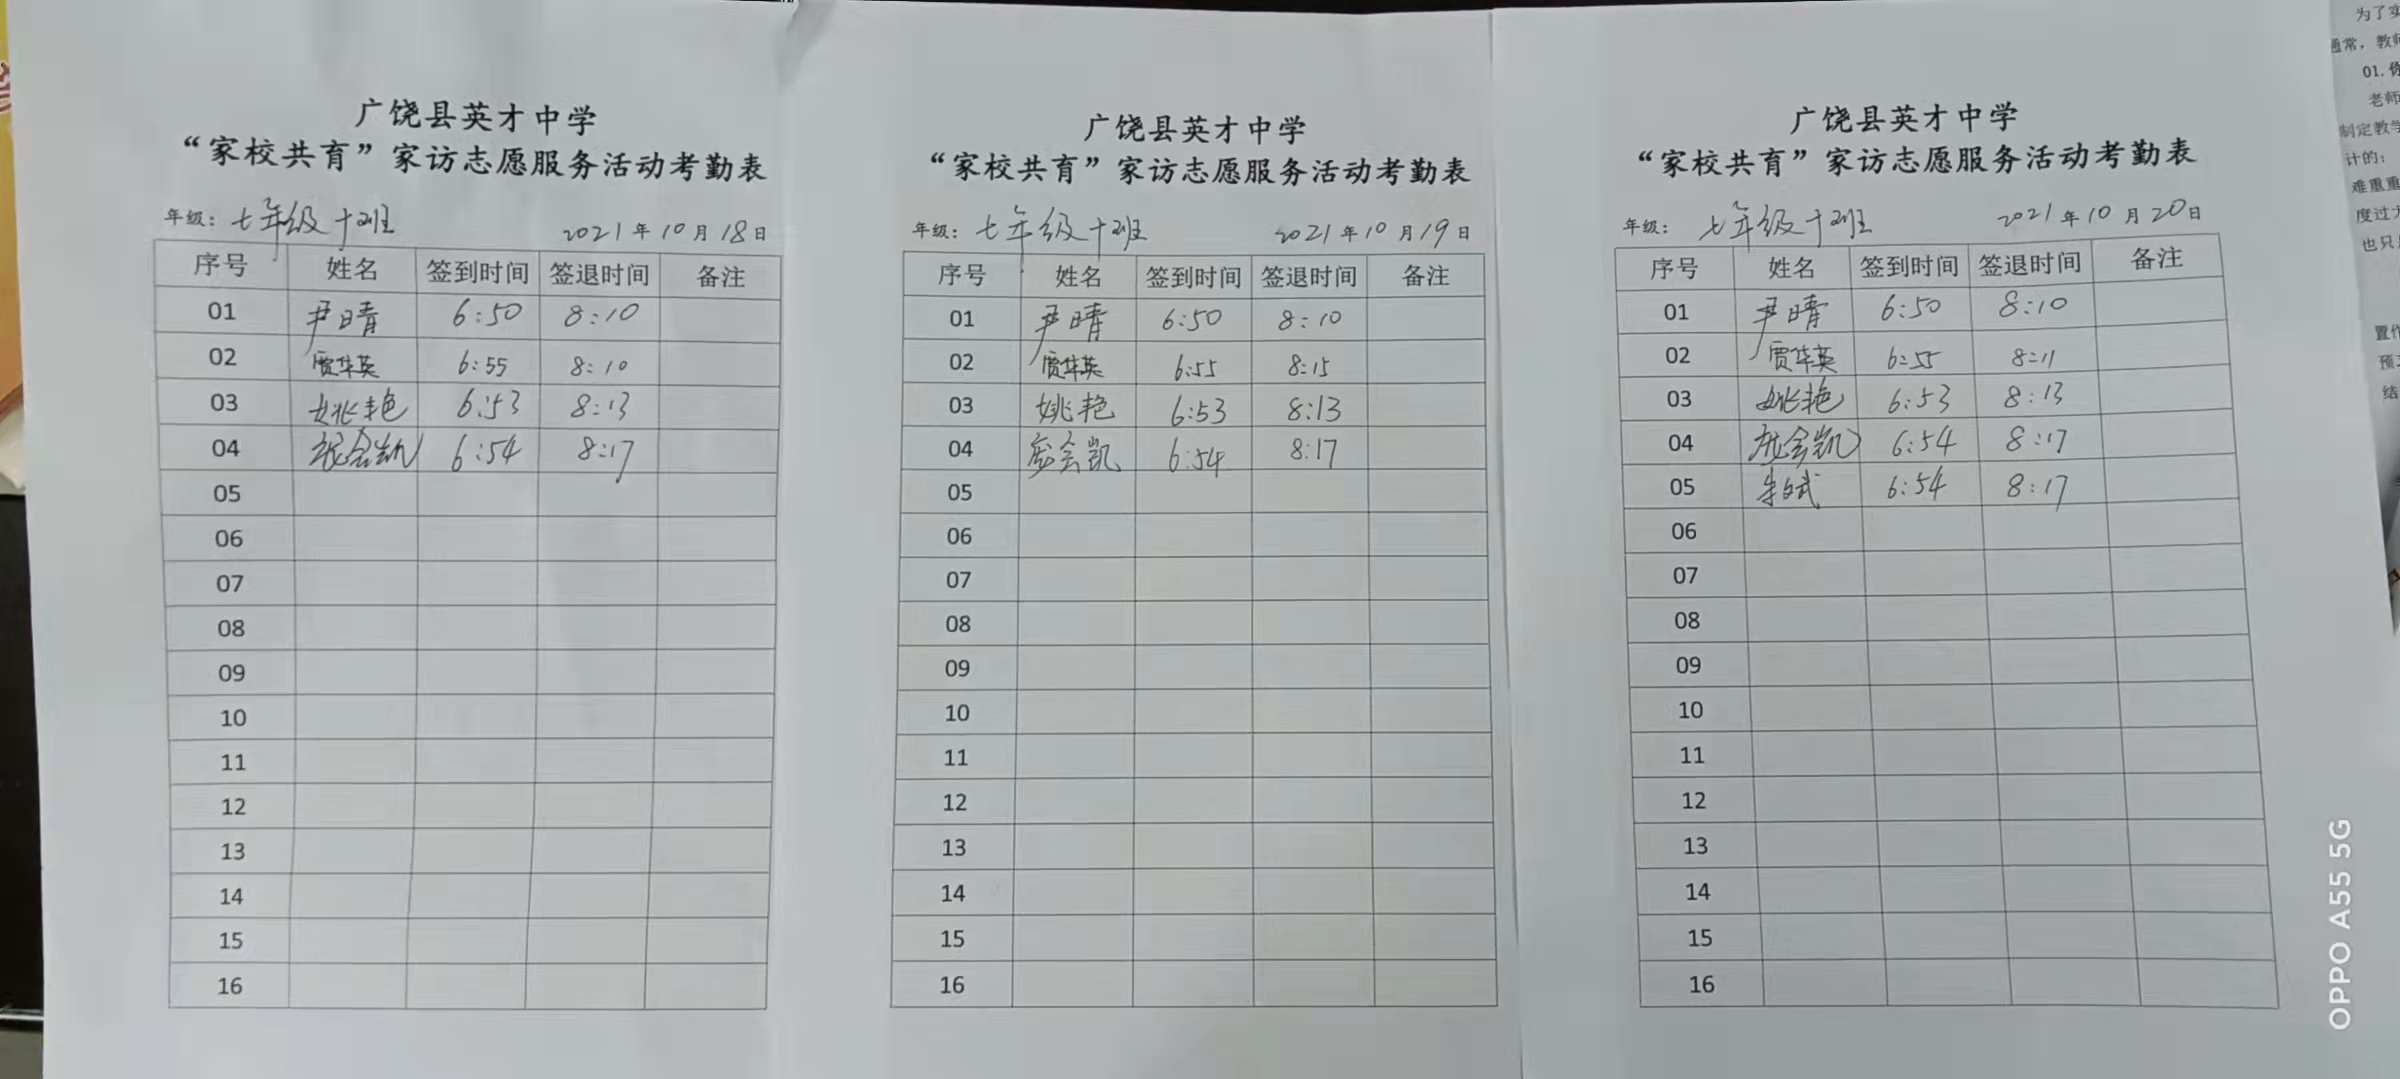 广饶县英才中学
“家校共育”家访志愿服务活动考勤表
年级：七年级十班 2021年10月18日
序号 姓名 签到时间 签退时间 备注
01 尹晴 6:50 8:10
02 贾华英 6:55 8:10
03 姚艳 6:53 8:13
04 会凯 6:54 8:17
05
06
07
08
09
10
11
12
13
14
15
16
广饶县英才中学
“家校共育”家访志愿服务活动考勤表
年级：七年级十班 2021年10月19日
序号 姓名 签到时间 签退时间 备注
01 尹晴 6:50 8:10
02 贾华英 6:55 8:15
03 姚艳 6:53 8:13
04 会凯 6:54 8:17
05
06
07
08
09
10
11
12
13
14
15
16
广饶县英才中学
“家校共育”家访志愿服务活动考勤表
年级：七年级十班 2021年10月20日
序号 姓名 签到时间 签退时间 备注
01 尹晴 6:50 8:10
02 贾华英 6:55 8:11
03 姚艳 6:53 8:13
04 会凯 6:54 8:17
05 6:54 8:17
06
07
08
09
10
11
12
13
14
15
16
为了实
通常，教师
01.你
老师
制定教学
计的；
难重重
度过大
也只
置作
预
结
OPPO A55 5G